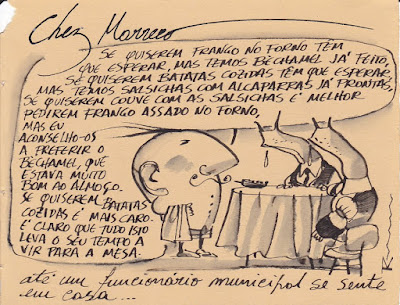 Chez Marreco
SE QUISEREM FRANGO NO FORNO TÊM
QUE ESPERAR, MAS TEMOS BÉCHAMEL JÁ FEITO,
SE QUISEREM BATATAS COZIDAS TÊM QUE ESPERAR,
MAS TEMOS SALSICHAS COM ALCAPARRAS JÁ PRONTAS,
SE QUISEREM COUVE COM AS SALSICHAS É MELHOR
PEDIREM FRANGO ASSADO NO FORNO,
MAS EU
ACONSELHO-OS
A PREFERIR O
BÉCHAMEL, QUE
ESTAVA MUITO
BOM AO ALMOÇO.
SE QUISEREM BATATAS
COZIDAS É MAIS CARO.
E CLARO QUE TUDO ISTO
LEVA O SEU TEMPO A
VIR PARA A MESA.
até um funcionário municipal se sente
em casa...